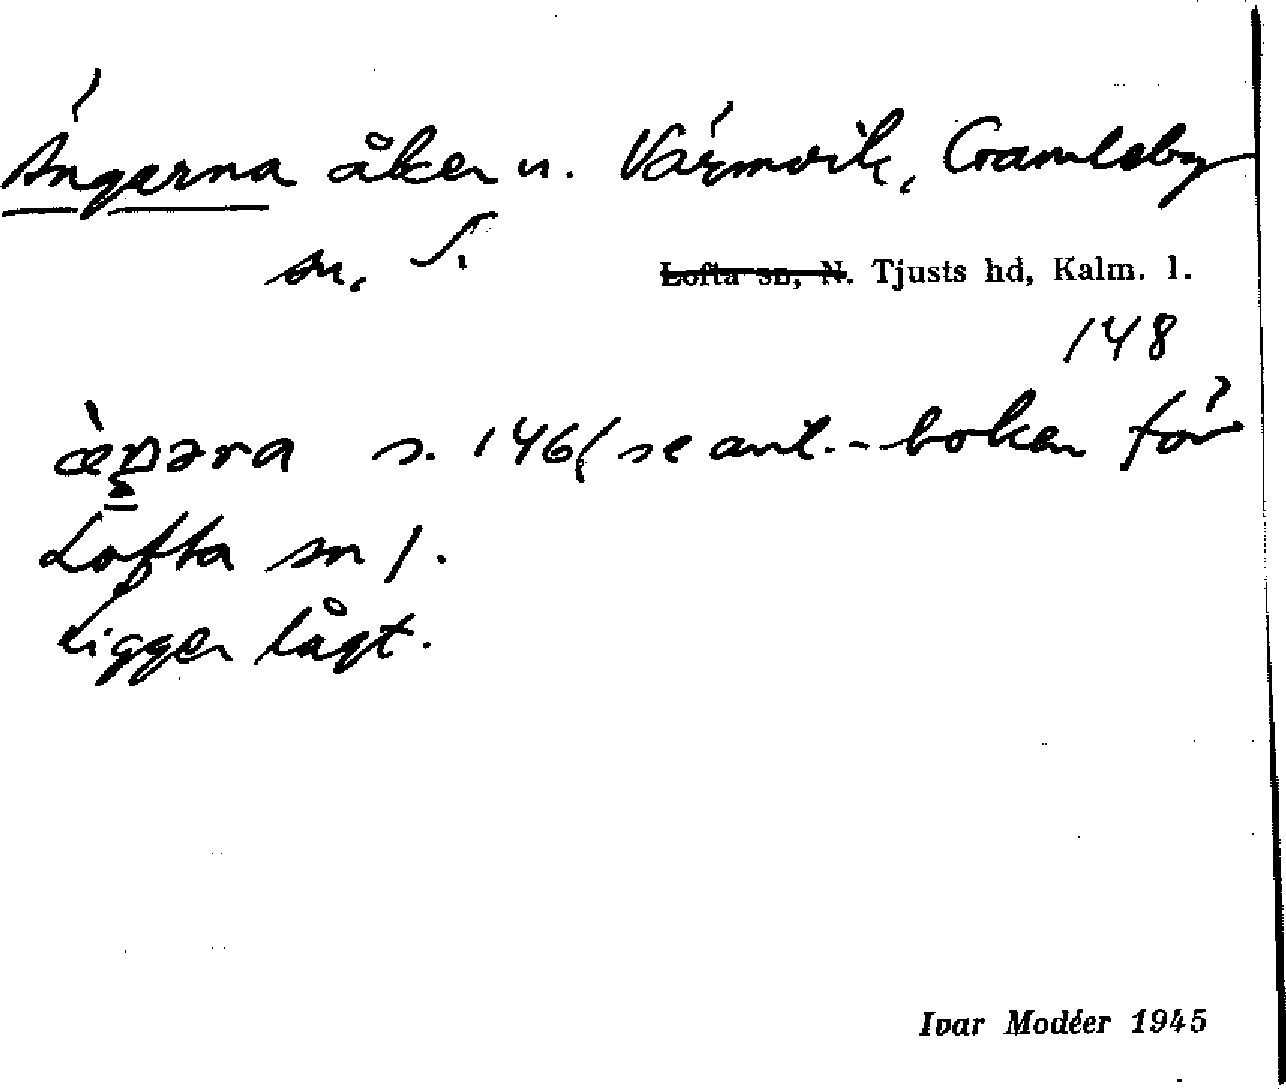 Ängerna åker u. Värmvik, Gamleby
sn. S.
Lofta sn, N. Tjusts hd, Kalm. l.
148
æ̀ŋəra s. 146 (se ant.-boken för
Lofta sn).
Ligger lågt.
Ivar Modéer 1945